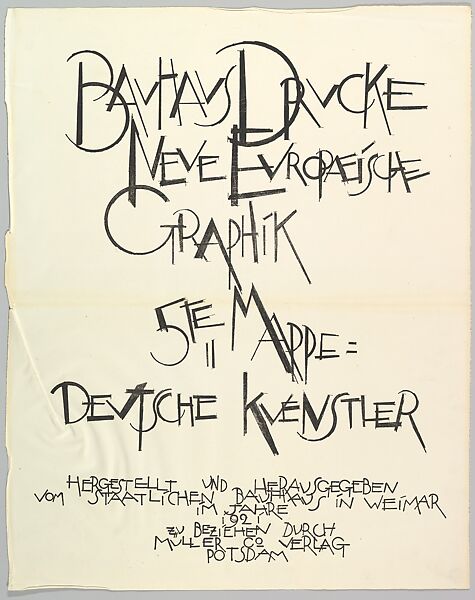 BAUHAUS DRUCKE
NEUE EUROPAEISCHE
GRAPHIK
5TE MAPPE =
DEUTSCHE KUENSTLER
HERGESTELLT UND HERAUSGEGEBEN
VOM STAATLICHEN BAUHAUS IN WEIMAR
IM JAHRE
1921
ZU BEZIEHEN DURCH
MÜLLER CO VERLAG
POTSDAM